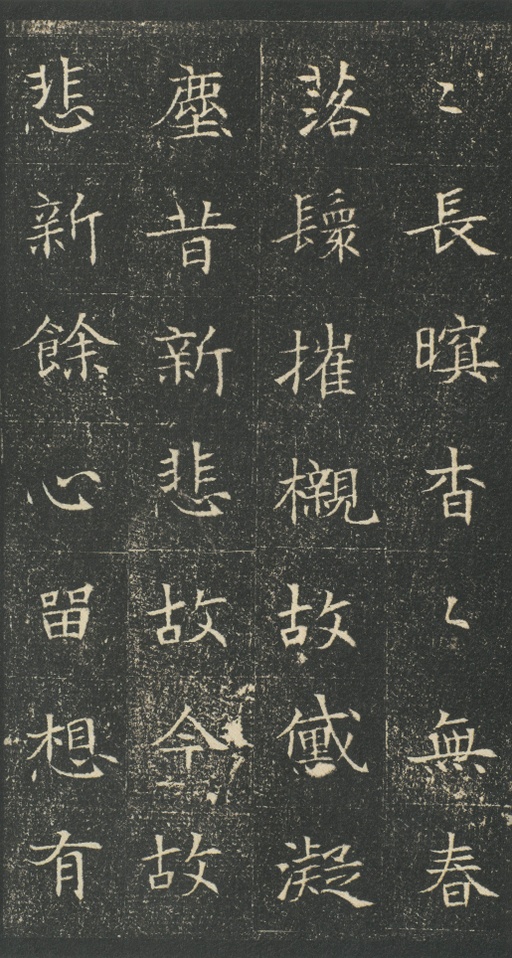 〻長暝杳〻無春
落鬟摧櫬故黛凝
塵昔新悲故今故
悲新餘心留想有